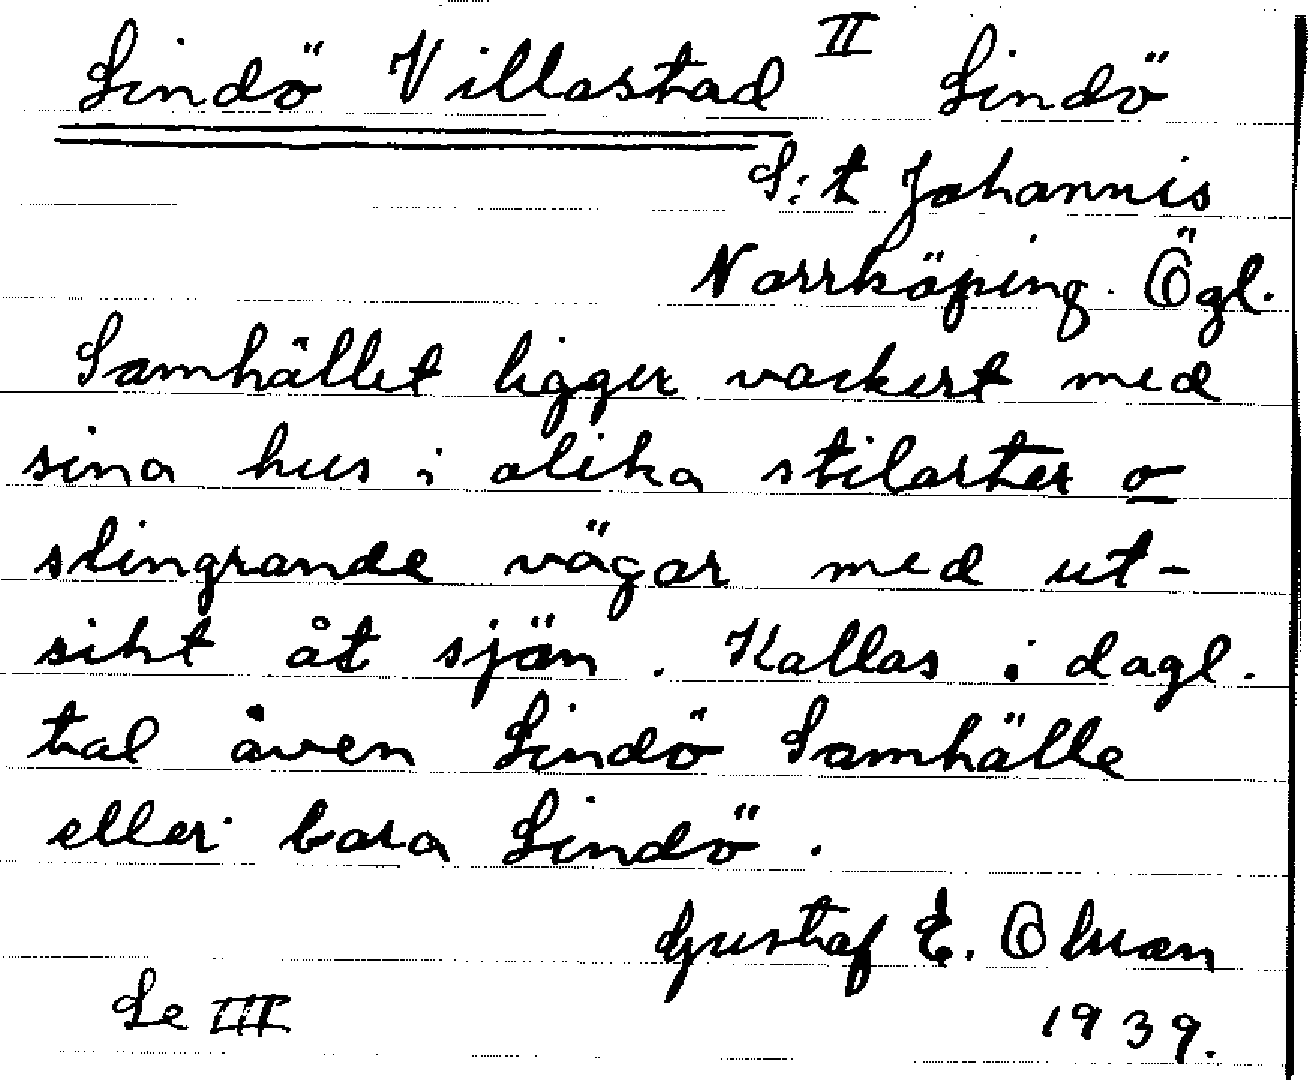 Lindö Villastad II Lindö
S:t Johannis
Norrköping. Ögl.
Samhället ligger vackert med
sina hus i olika stilarter o
slingrande vägar med ut-
sikt åt sjön. Kallas i dagl.
tal även Lindö Samhälle
eller bara Lindö.
Gustaf E.
Se III
1939.